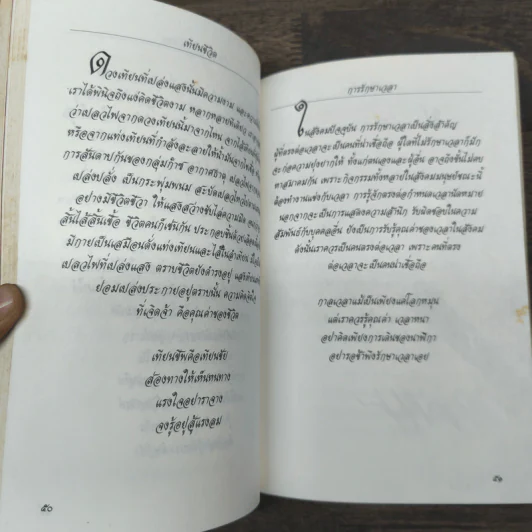 เทียนชีวิต
ดวงเทียนที่เปล่งแสงนั้นมีความงาม และความ
เราได้พินิจถึงแง่คิดชีวิตงาม หลากหลายทีเดียว
เปลวไฟจากดวงเทียนนี้มาจากไหน จากไส้
หรือจากแท่งเทียนที่กำลังละลายให้น้ำมันจากไส้
การสันดาปกันของกลุ่มก๊าซ อากาศธาตุ
เปล่งปลั่ง เป็นกระพุ่มพนม สะบัดเปลวไฟ
อย่างมีชีวิตชีวา ให้แสงสว่างชั่วไส้
สิ้นไส้สิ้นเชื้อ ชีวิตคนก็เช่นกัน ประกอบขึ้นด้วย
มีกายเป็นเสมือนดั่งแท่งเทียนและไส้ใน
เปลวไฟที่เปล่งแสง ตราบชีวิตยังดำรงอยู่ แสงแห่ง
ย่อมเปล่งประกายอยู่ตราบนั้น
ที่เจิดจ้า คือคุณค่าของชีวิต
เทียนชัพคือเทียนชัย
ส่องทางให้เห็นหนทาง
แรงใจอย่าราจาง
จงรู้อยู่สู้แรงลม
๕๐
การรักษาเวลา
ในสังคมปัจจุบัน การรักษาเวลาเป็นสิ่งสำคัญ
ผู้ที่ตรงต่อเวลาจะเป็นคนที่น่าเชื่อถือ ผู้ใดที่ไม่รักษาเวลาก็มัก
จะก่อความยุ่งยากให้ ทั้งแก่ตนเองและผู้อื่น อาจถึงขั้นไม่คบ
หาสมาคมกัน เพราะกิจกรรมทั้งหลายในสังคมมนุษย์ขณะนี้
ต้องทำงานแข่งกับเวลา การรู้จักตรงต่อกำหนดเวลานัดหมาย
นอกจากจะเป็นการแสดงความสำนึก รับผิดชอบในความ
สัมพันธ์กับบุคคลอื่น ยังเป็นการรับรู้คุณค่าของเวลาในสังคม
ดังนั้นเราควรเป็นคนตรงต่อเวลา เพราะคนที่ตรง
ต่อเวลาจะเป็นคนน่าเชื่อถือ
กาลเวลาแม้เป็นเพียงแค่โลกหมุน
แต่เราควรรู้คุณค่า เวลาหนา
อย่าคิดเพียงการเดินของนาฬิกา
อย่ารอช้าพึงรักษาเวลาเอย
๕๑